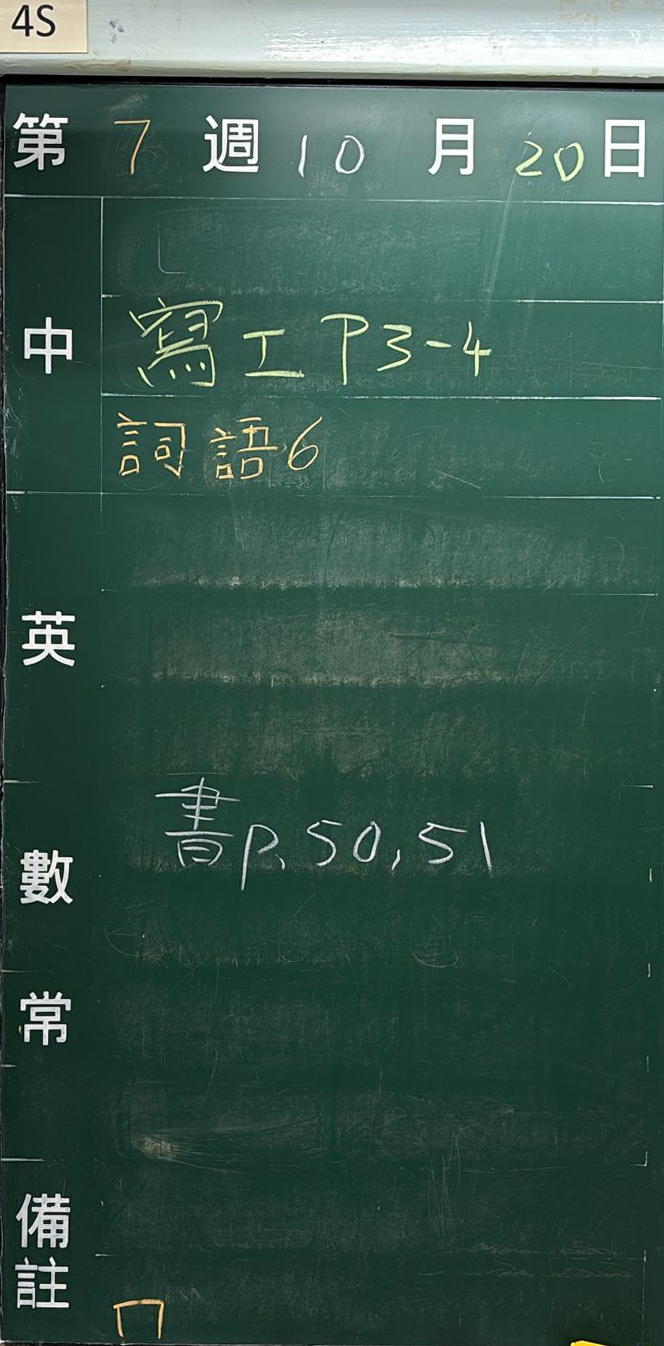 4S
第 7 週 10 月 20 日
中
寫工 P3-4
詞語6
英
數
書p.50,51
常
備註